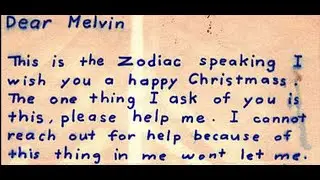 Dear Melvin
This is the Zodiac speaking I
wish you a happy Christmass.
The one thing I ask of you is
this, please help me. I cannot
reach out for help because of
this thing in me wont let me.